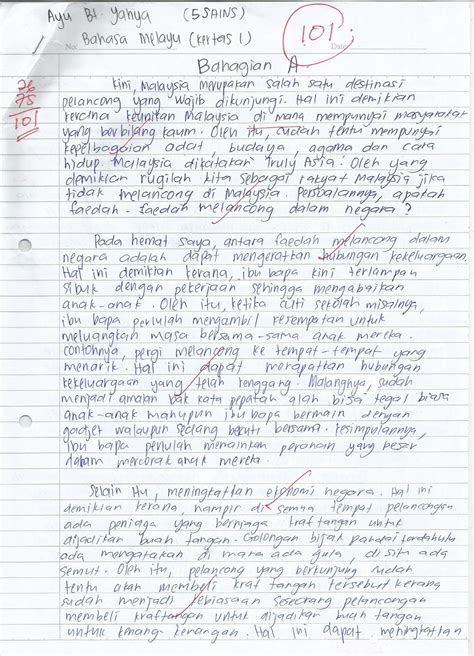 Ayu Bt. Yahya (5 SAINS)
No: Bahasa Melayu (kertas 1) Date:
101
Bahagian A
26
75
101
Kini, Malaysia merupakan salah satu destinasi
pelancong yang wajib dikunjungi. Hal ini demikian
kerana keunikan Malaysia di mana mempunyai masyarakat
yang berbilang kaum. Oleh itu, sudah tentu mempunyai
kepelbagaian adat, budaya, agama dan cara
hidup. Malaysia dikatakan Truly Asia! Oleh yang
demikian rugilah kita sebagai rakyat Malaysia jika
tidak melancong di Malaysia. Persoalannya, apakah
faedah-faedah melancong dalam negara?
Pada hemat saya, antara faedah melancong dalam
negara adalah dapat mengeratkan hubungan kekeluargaan.
Hal ini demikian kerana, ibu bapa kini terlampau
sibuk dengan pekerjaan sehingga mengabaikan
anak-anak. Oleh itu, ketika cuti sekolah misalnya,
ibu bapa perlulah mengambil kesempatan untuk
meluangkan masa bersama-sama anak mereka.
contohnya, pergi melancong ke tempat-tempat yang
menarik. Hal ini dapat merapatkan hubungan
kekeluargaan yang telah renggang. Malangnya, sudah
menjadi amalan bak kata pepatah alah bisa tegal biasa
anak-anak mahupun ibu bapa bermain dengan
gadjet walaupun sedang bercuti bersama. Kesimpulannya,
ibu bapa perlulah memainkan peranan yang besar
dalam mencorak anak mereka.
Selain itu, meningkatkan ekonomi negara. Hal ini
demikian kerana, hampir di semua tempat pelancongan
ada peniaga yang berniaga kraftangan untuk
dijadikan buah tangan. Golongan bijak pandai terdahulu
ada mengatakan di mana ada gula, di situ ada
semut. Oleh itu, pelancong yang berkunjung sudah
tentu akan membeli kraf tangan tersebut kerana
sudah menjadi kebiasaan seseorang pelancongan
membeli kraftangan untuk dijadikan buah tangan
untuk kenang-kenangan. Hal ini dapat meningkatkan